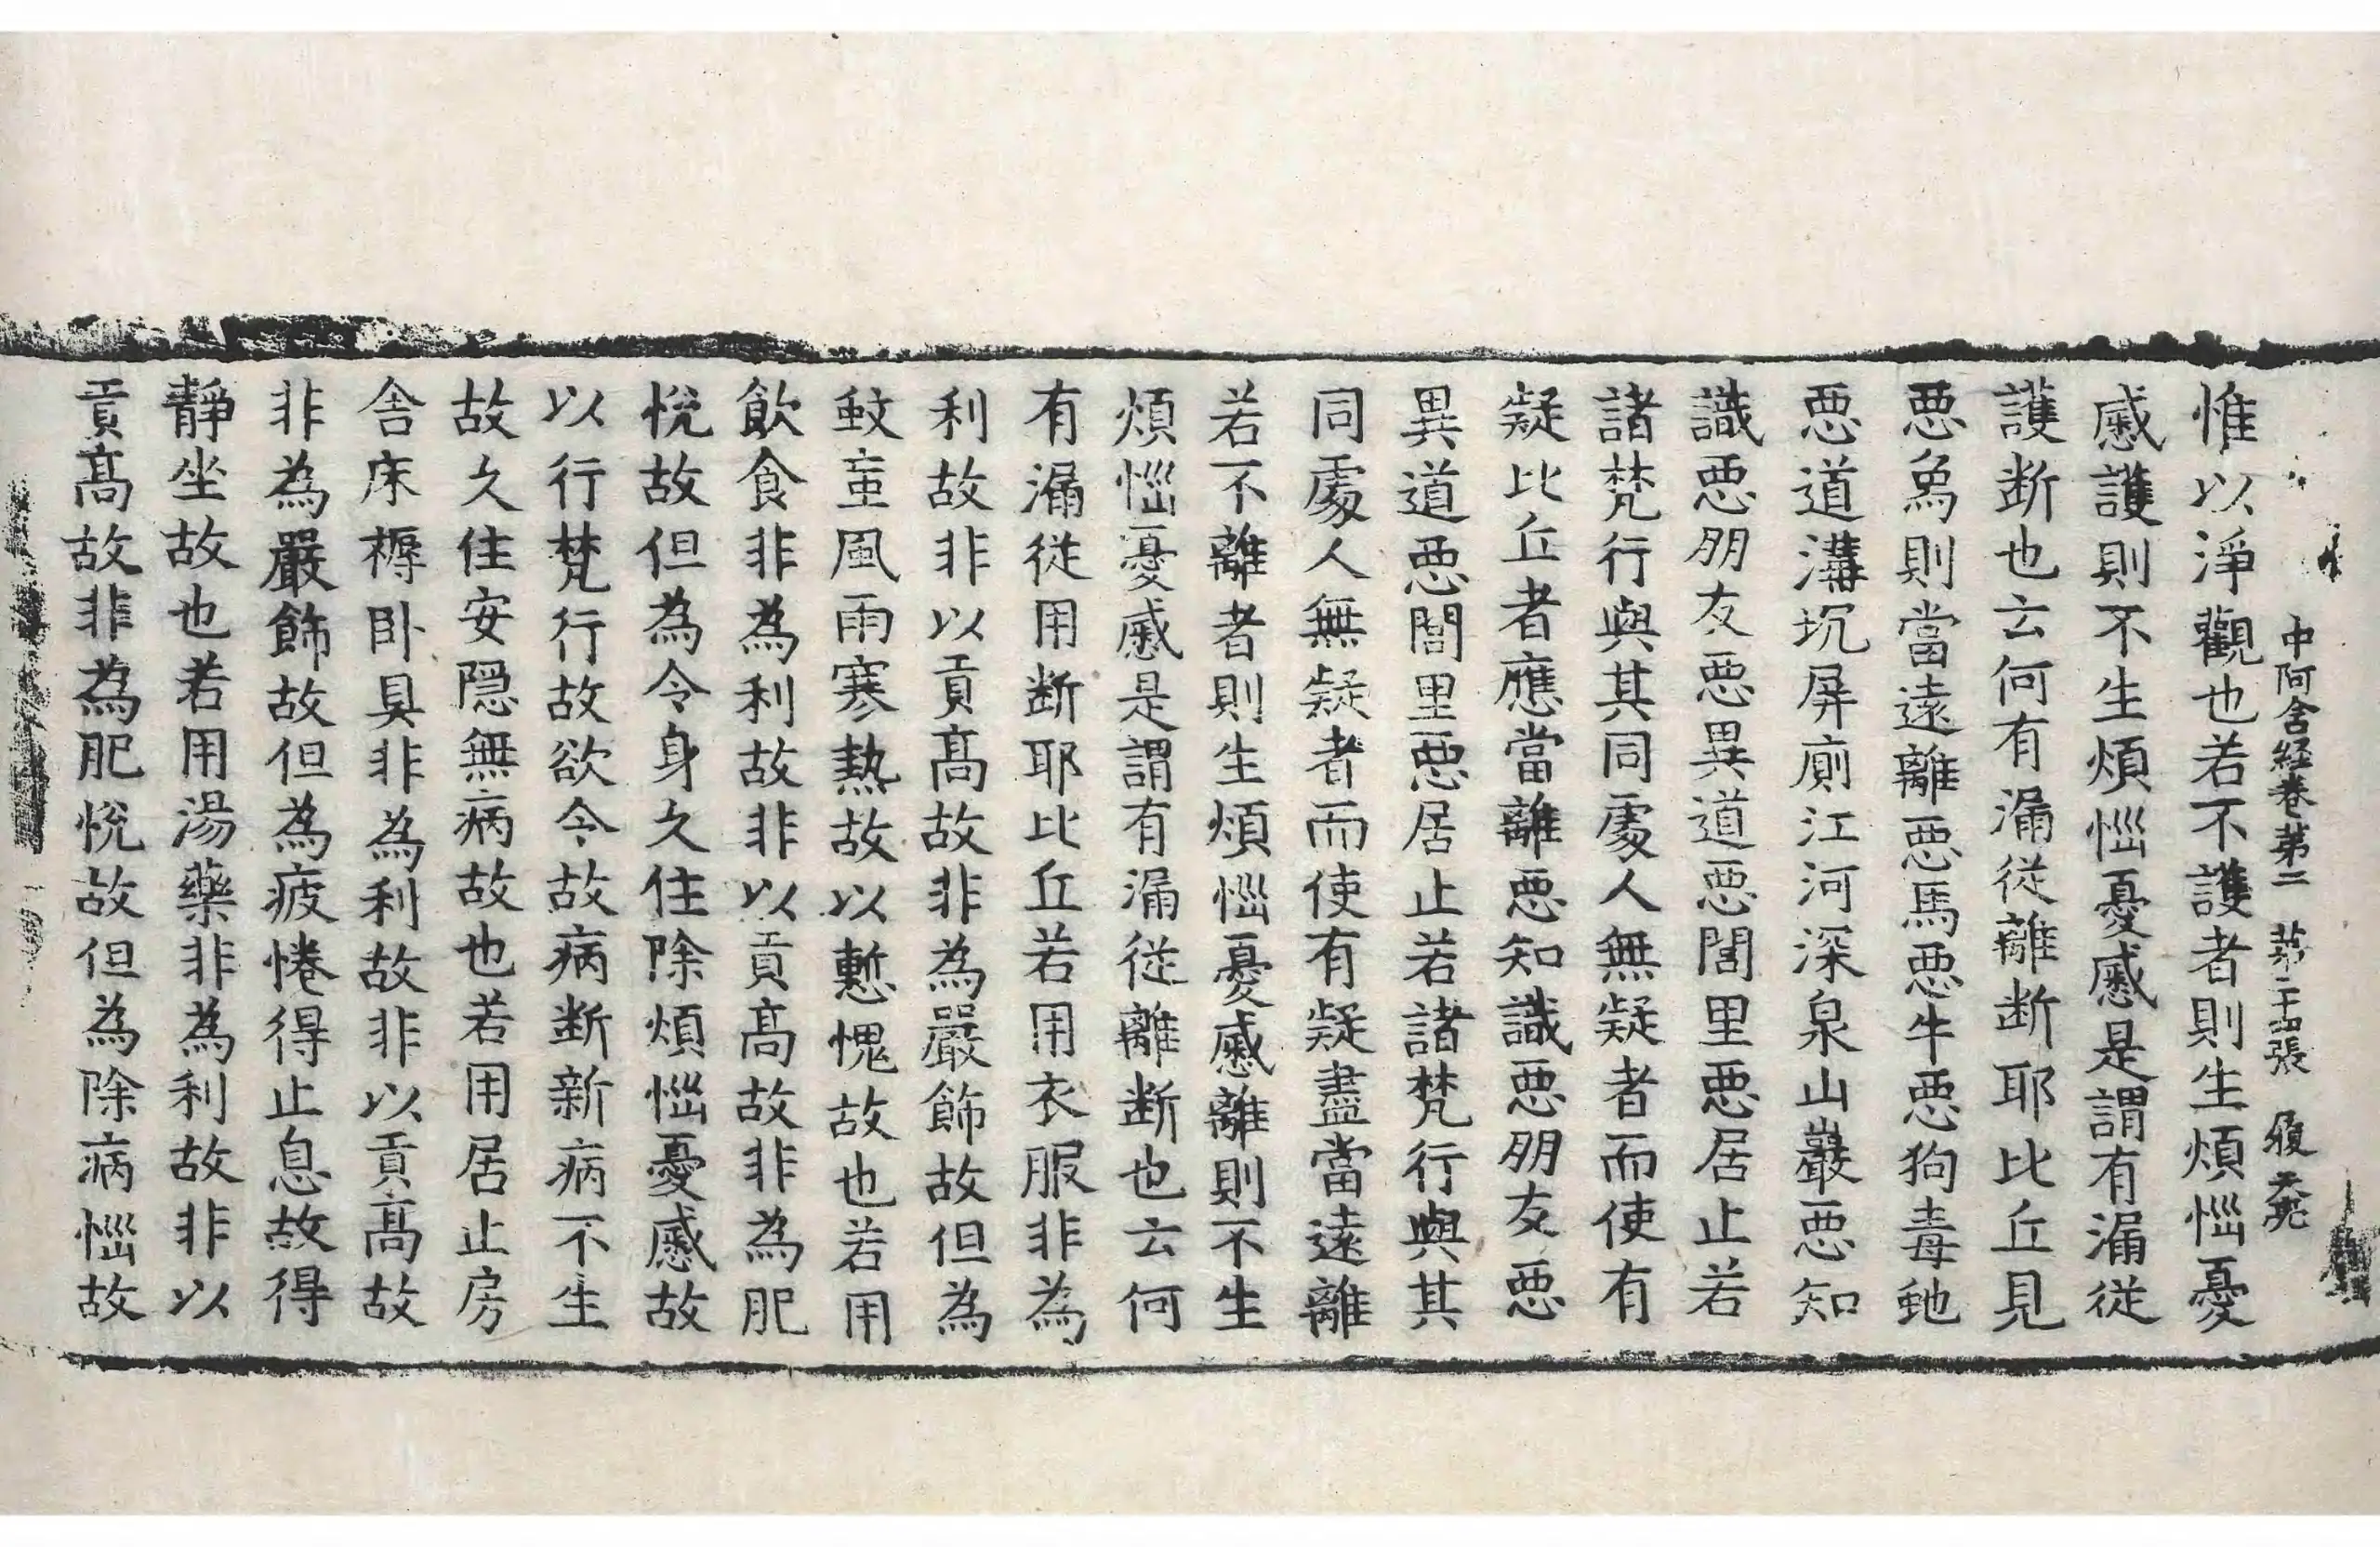 中阿含経巻第二　第二十四張　履
惟以淨觀也若不護者則生煩惱憂
慼護則不生煩惱憂慼是謂有漏從
護断也云何有漏從離断耶比丘見
惡象則當遠離惡馬惡牛惡狗毒虵
惡道溝坑屏廁江河深泉山巖惡知
識惡朋友惡異道惡閭里惡居止若
諸梵行與其同處人無疑者而使有
疑比丘者應當離惡知識惡朋友惡
異道惡閭里惡居止若諸梵行與其
同處人無疑者而使有疑盡當遠離
若不離者則生煩惱憂慼離則不生
煩惱憂慼是謂有漏從離断也云何
有漏從用断耶比丘若用衣服非為
利故非以貢髙故非為嚴飾故但為
蚊䖟風雨寒熱故以慙愧故也若用
飲食非為利故非以貢髙故非為肥
悅故但為令身久住除煩惱憂慼故
以行梵行故欲令故病断新病不生
故久住安隠無病故也若用居止房
舎床褥卧具非為利故非以貢髙故
非為嚴飾故但為疲惓得止息故得
静坐故也若用湯藥非為利故非以
貢髙故非為肥悅故但為除病惱故